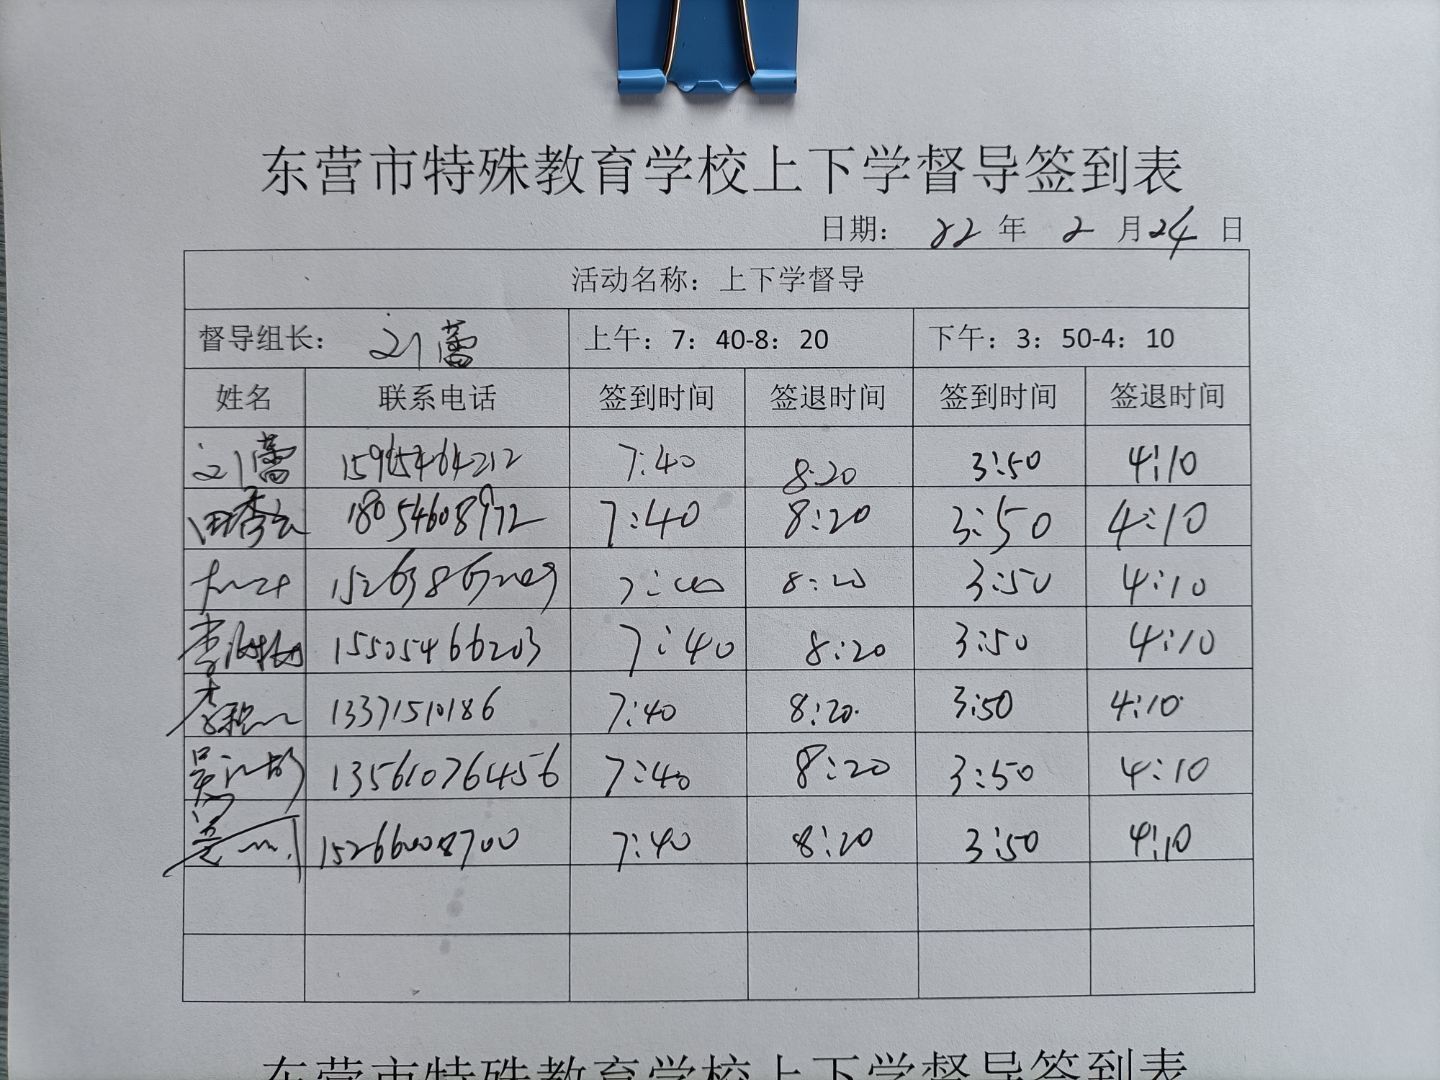 东营市特殊教育学校上下学督导签到表
日期： 22 年 2 月 24 日
活动名称：上下学督导
督导组长： 刘蕾 上午：7：40-8：20 下午：3：50-4：10
姓名 联系电话 签到时间 签退时间 签到时间 签退时间
刘蕾 15965464212 7:40 8:20 3:50 4:10
田秀云 18054608972 7:40 8:20 3:50 4:10
15263867209 7:40 8:20 3:50 4:10
李 15505466203 7:40 8:20 3:50 4:10
李 13371510186 7:40 8:20. 3:50 4:10
吴 13561076456 7:40 8:20 3:50 4:10
15266008700 7:40 8:20 3:50 4:10
东营市特殊教育学校上下学督导签到表